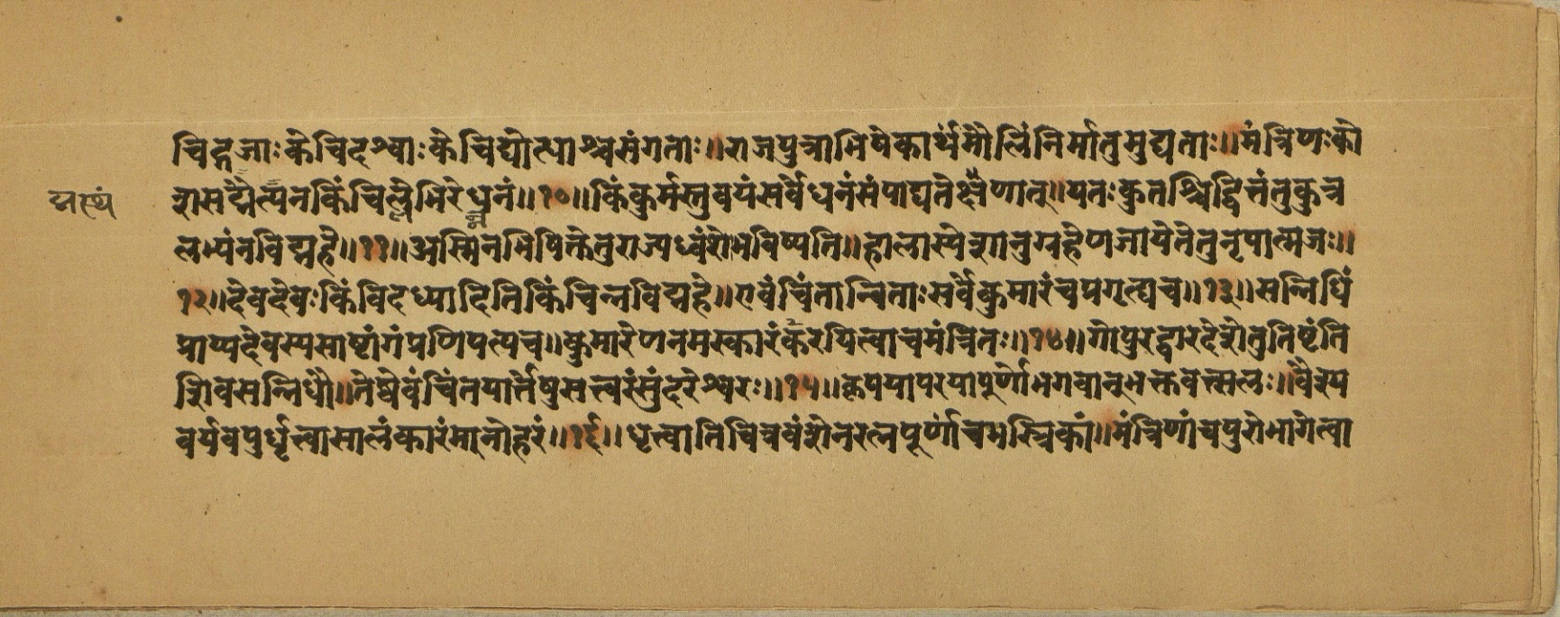 चिद्गजाःकेचिदश्वाःकेचिद्योत्धाश्चसंगताः॥राजपुत्राभिषेकार्थंमौलिंनिर्मातुमुद्यताः॥मंत्रिणःको
शसद्मेत्यनकिंचिल्लेभिरेधनं॥१०॥किंकुर्मस्तुवयंसर्वेधनंसंपाद्यतेक्षणात्॥यतःकुतश्चिद्वित्तंतुकुत्र
द्मस्थं
लभ्यंनविद्महे॥११॥अस्मिनभिषिक्तेतुराज्यध्वंशोभविष्यति॥हालास्येशानुग्रहेणजायेतेतुनृपात्मजः॥
१२॥देवदेवःकिंविदध्यादितिकिंचिन्नविद्महे॥एवंचिंतान्विताःसर्वेकुमारंचप्रगृत्ह्यच॥१३॥सन्निधिं
प्राप्यदेवस्यसाष्टांगंप्रणिपत्यच॥कुमारेणनमस्कारंकरयित्वाचमंत्रितः॥१४॥गोपुरद्वारदेशेतुतिष्टंति
शिवसन्निधौ॥तेष्वेवंचिंतयार्त्तेषुसत्त्वरंसुंदरेश्वरः॥१५॥कृपयापरयापूर्णोभगवान्भक्तवत्सलः॥वैश्य
वर्यवपुर्धृत्वासालंकारंमानोहरं॥१६॥धृत्वातिचित्रवंशेनरत्नपूर्णांचभस्त्रिकां॥मंत्रिणांचपुरोभागेत्वा